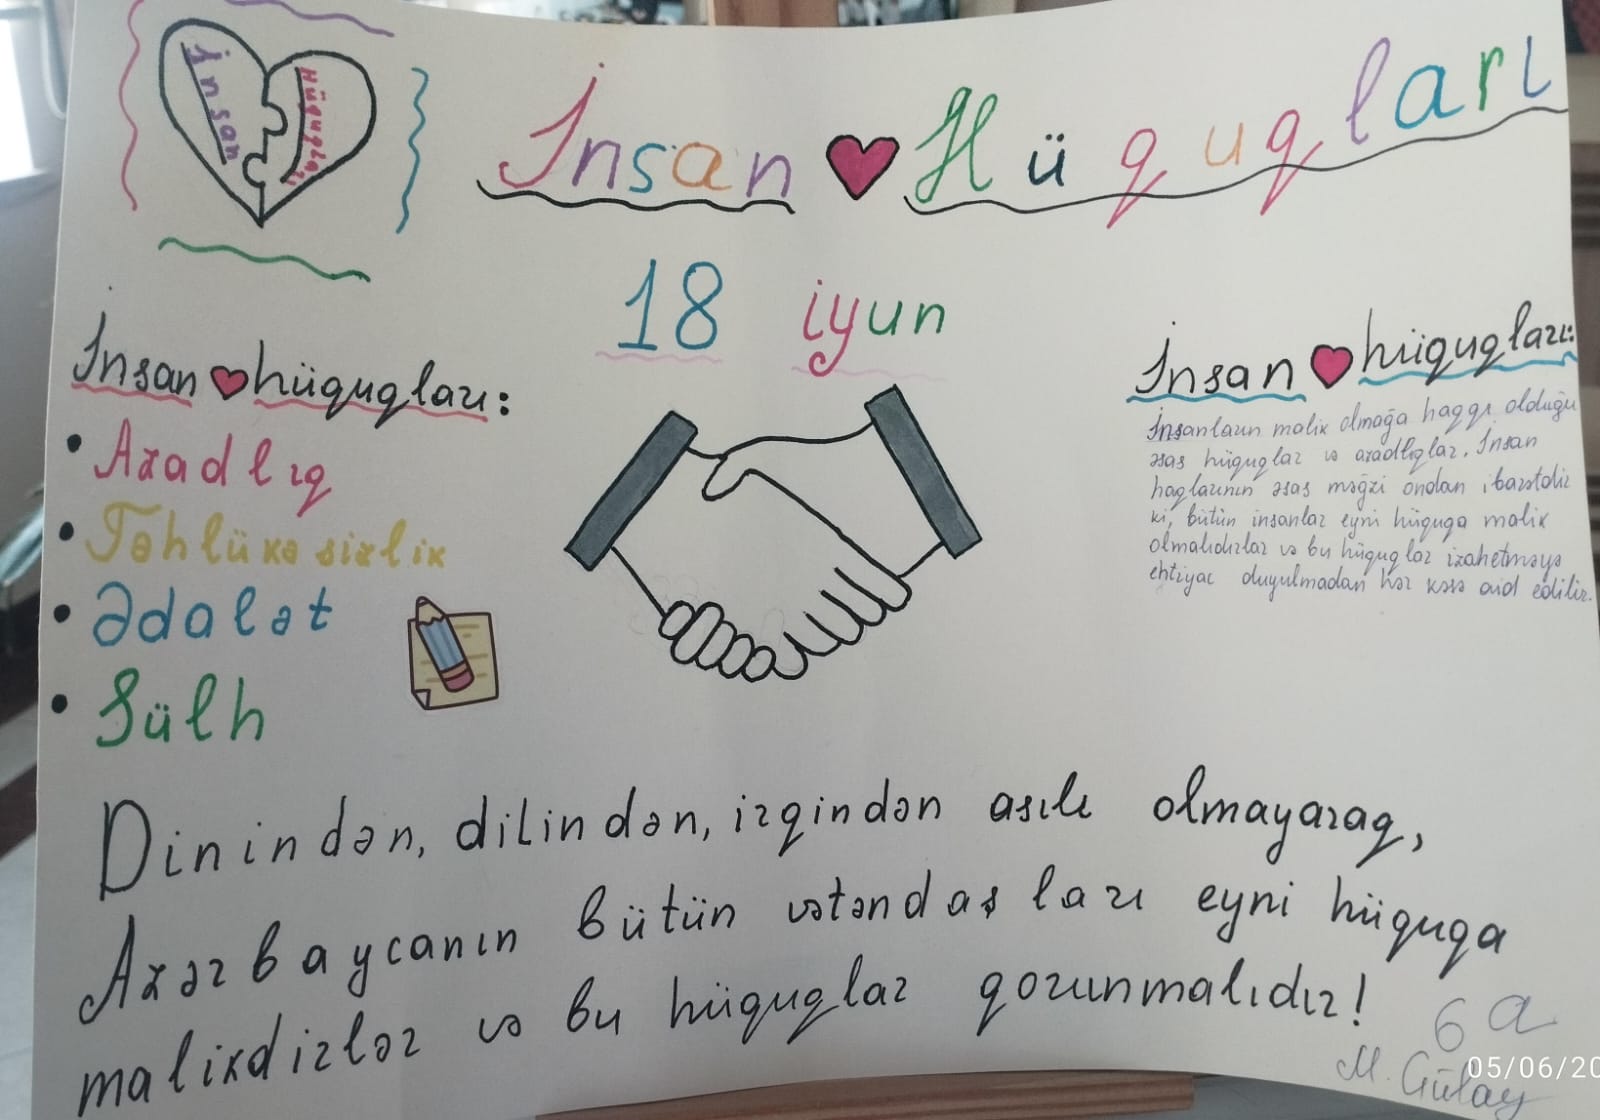 İnsan Hüquqları
İnsan ❤ Hüquqları
18 iyun
İnsan ❤ hüquqları:
• Azadlıq
• Təhlükəsizlik
• Ədalət
• Sülh
İnsan ❤ hüquqları:
İnsanların malik olmağa haqqı olduğu
əsas hüquqlar və azadlıqlar. İnsan
haqlarının əsas məğzi ondan ibarətdir
ki, bütün insanlar eyni hüquqa malik
olmalıdırlar və bu hüquqlar izahetməyə
ehtiyac duyulmadan hər kəsə aid edilir.
Dinindən, dilindən, irqindən asılı olmayaraq,
Azərbaycanın bütün vətəndaşları eyni hüquqa
malikdirlər və bu hüquqlar qorunmalıdır!
6 a
M. Gülay
05/06/20